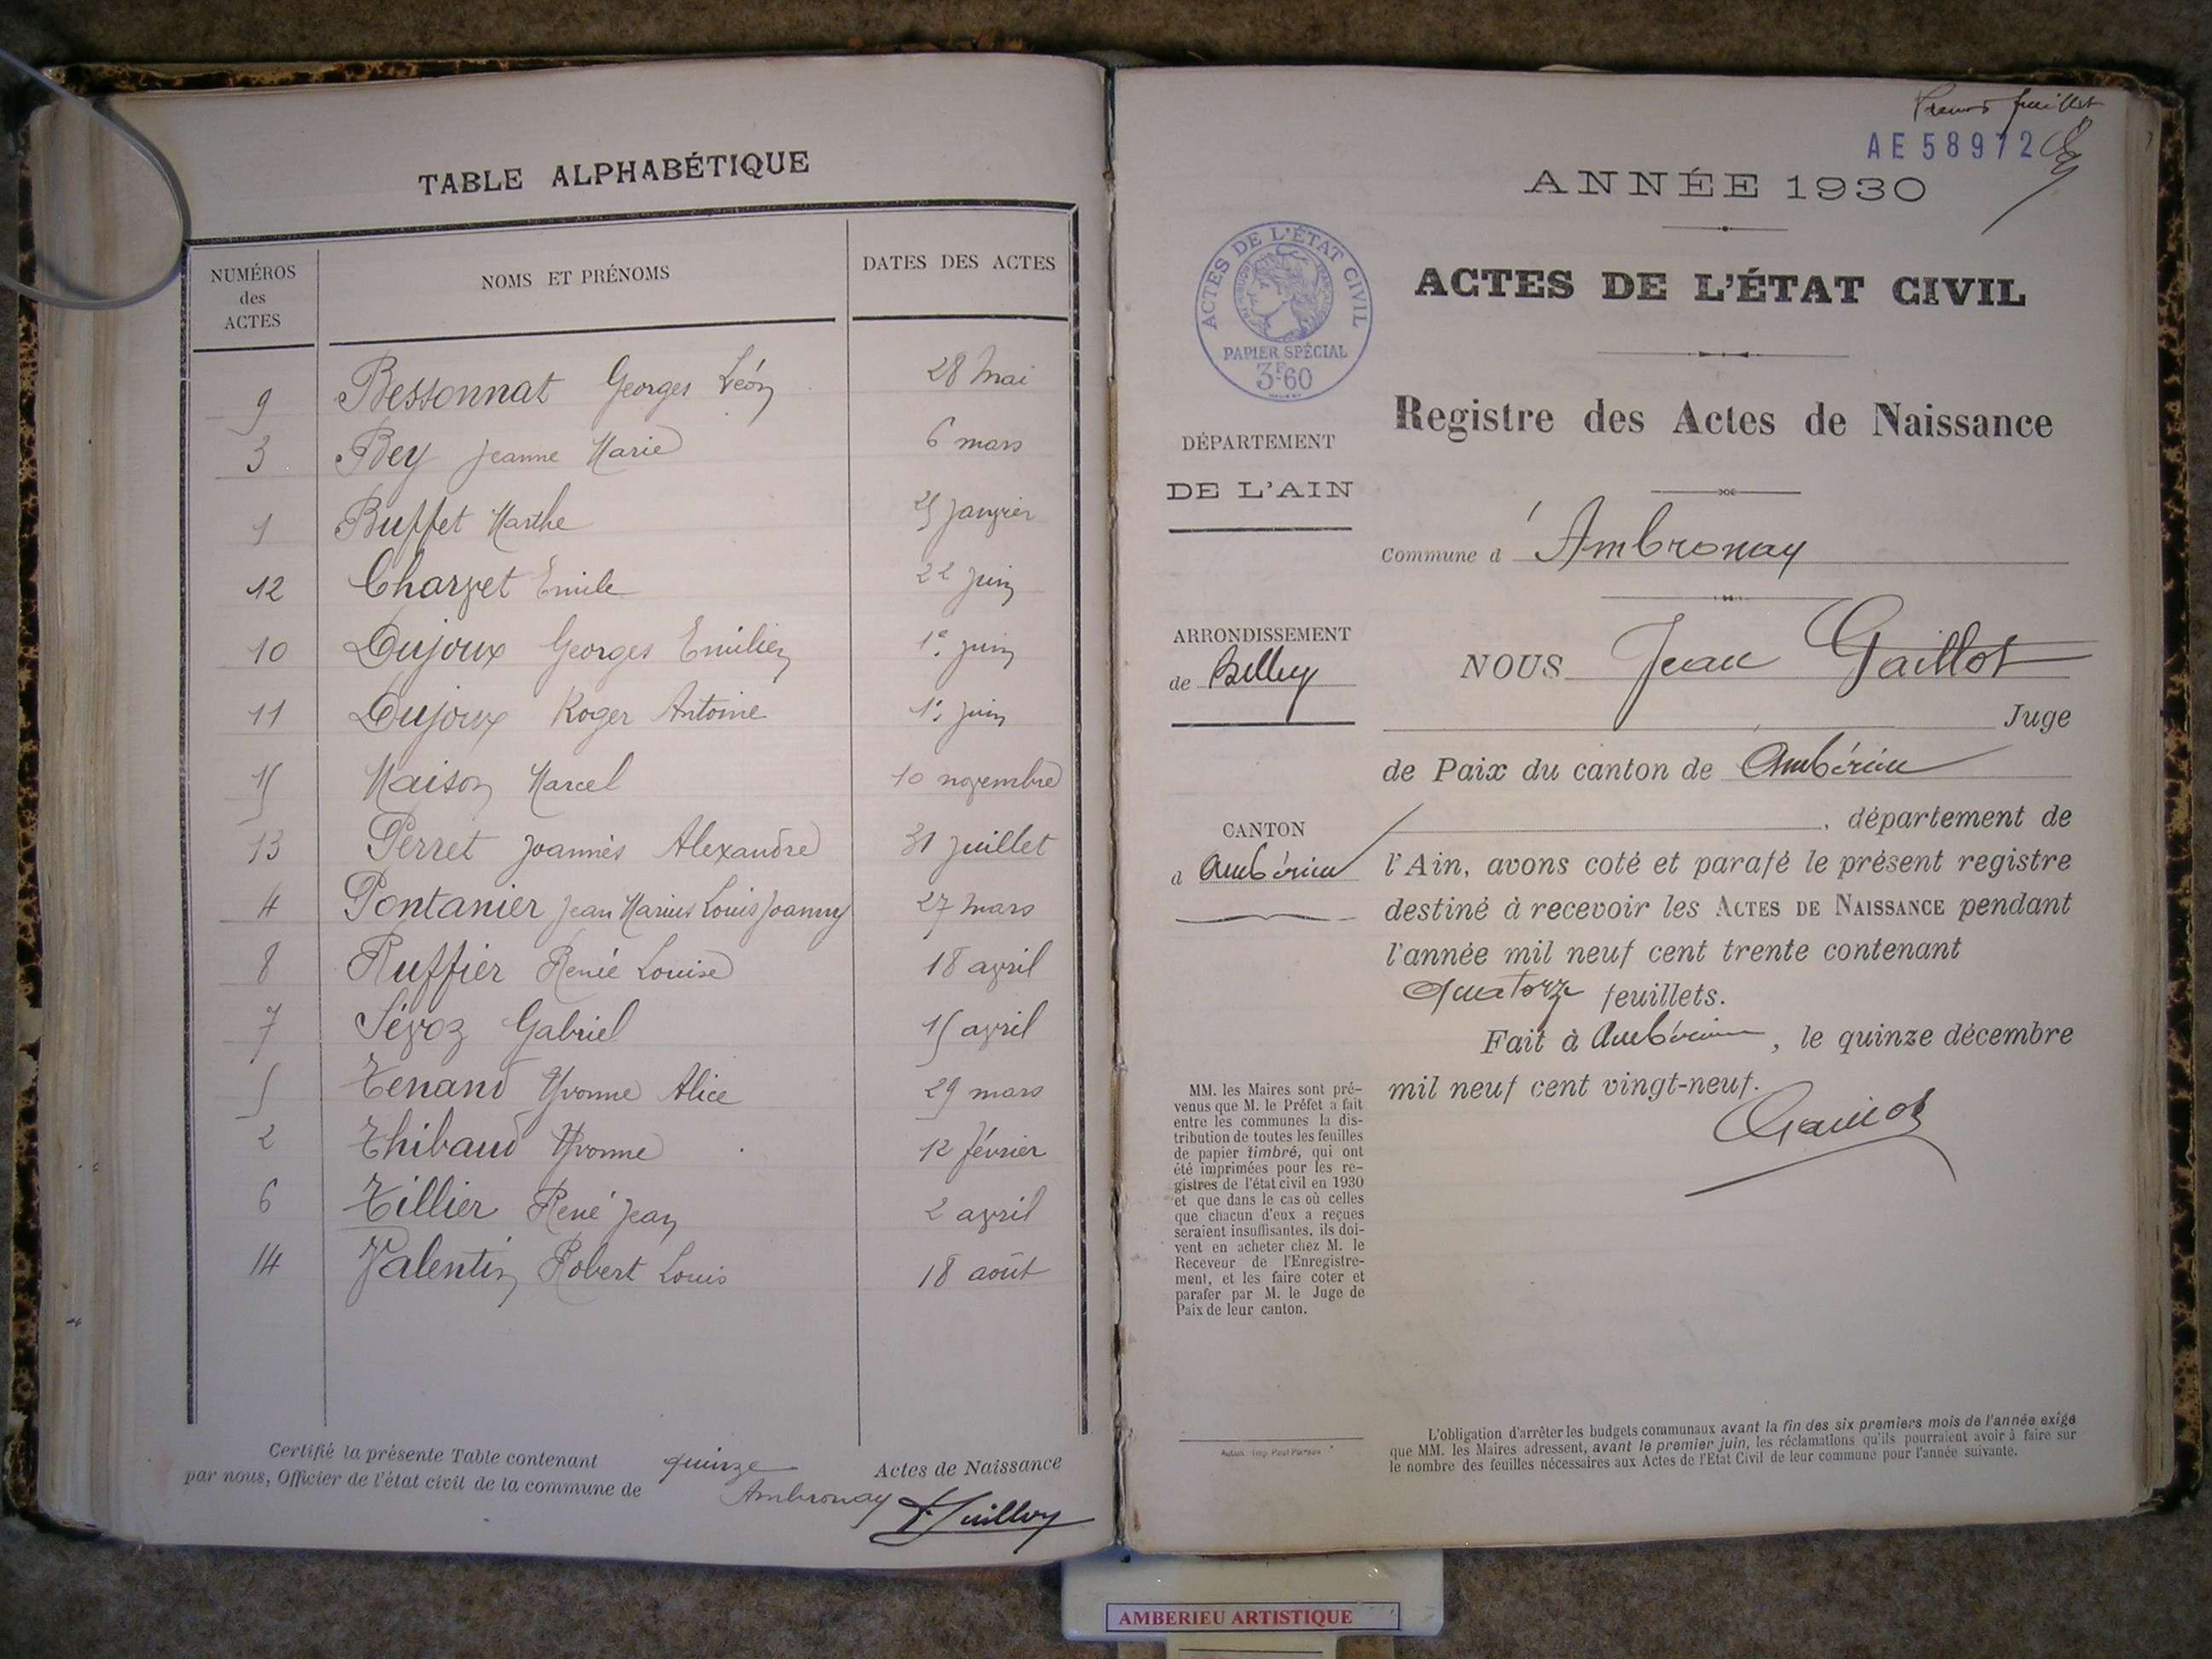 TABLE ALPHABÉTIQUE
NUMÉROS des ACTES NOMS ET PRÉNOMS DATES DES ACTES
9 Bessonnat Georges Léon 28 Mai
3 Bey Jeanne Marie 6 mars
1 Buffet Marthe 25 Janvier
12 Charvet Emile 22 juin
10 Dujoux Georges Emilien 1er juin
11 Dujoux Roger Antoine 1er juin
15 Maison Marcel 10 novembre
13 Perret Joannès Alexandre 31 juillet
4 Pontanier Jean Marius Louis Joanny 27 mars
8 Ruffier Renée Louise 18 avril
7 Sévoz Gabriel 15 avril
5 Tenand Yvonne Alice 29 mars
2 Thibaud Yvonne 12 février
6 Tillier René Jean 2 avril
14 Valentin Robert Louis 18 août
Certifié la présente Table contenant quinze Actes de Naissance
par nous, Officier de l'état civil de la commune de Ambronay
Premier feuillet
AE 58972
ANNÉE 1930
ACTES DE L'ÉTAT CIVIL
PAPIER SPÉCIAL
3F60
ACTES DE L'ÉTAT CIVIL
Registre des Actes de Naissance
DÉPARTEMENT
DE L'AIN
Commune d' Ambronay
ARRONDISSEMENT
de Belley
NOUS Jean Gaillot
Juge
de Paix du canton de Ambérieu
, département de
CANTON
d Ambérieu
l'Ain, avons coté et parafé le présent registre
destiné à recevoir les ACTES DE NAISSANCE pendant
l'année mil neuf cent trente contenant
quatorze feuillets.
Fait à Ambérieu, le quinze décembre
mil neuf cent vingt-neuf.
MM. les Maires sont pré-
venus que M. le Préfet a fait
entre les communes la dis-
tribution de toutes les feuilles
de papier timbré, qui ont
été imprimées pour les re-
gistres de l'état civil en 1930
et que dans le cas où celles
que chacun d'eux a reçues
seraient insuffisantes, ils doi-
vent en acheter chez M. le
Receveur de l'Enregistre-
ment, et les faire coter et
parafer par M. le Juge de
Paix de leur canton.
L'obligation d'arrêter les budgets communaux avant la fin des six premiers mois de l'année exige
que MM. les Maires adressent, avant le premier juin, les réclamations qu'ils pourraient avoir à faire sur
le nombre des feuilles nécessaires aux Actes de l'Etat Civil de leur commune pour l'année suivante.
AMBERIEU ARTISTIQUE